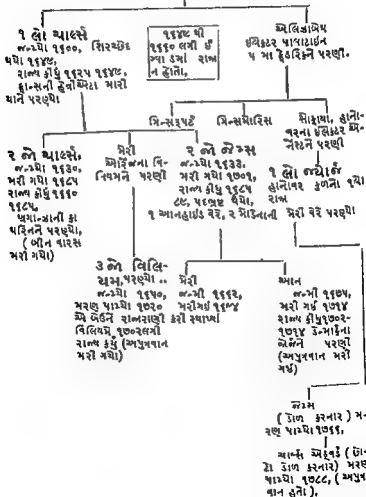 ૧ લો ચાર્લ્સ
જન્મ્યો ૧૬૦૦, શિરચ્છેદ
થયો ૧૬૪૯,
રાજ્ય કીધું ૧૬૨૫ ૧૬૪૯,
ફ્રાન્સની હેન્રીએટા મારી
યાને પરણ્યો
૧૬૪૯ થી
૧૬૬૦ લગી ઈ
ગ્લાંડમાં રાજા
ન હોતો,
એલિઝાબેથ
ઈલેક્ટર પાલાટાઇન
૫ મા ફ્રેડરિકને પરણી.
પ્રિન્સરૂપર્ટ
પ્રિન્સમોરિસ
સોફાયા, હાનો-
વરના ઈલેક્ટર અ-
ર્નેસ્ટને પરણી
૨ જો ચાર્લ્સ,
જન્મ્યો ૧૬૩૦,
મરી ગયો ૧૬૮૫
રાજ્ય કીધું ૧૬૬૦
૧૬૮૫,
બ્રાગાન્ઝાની કા
થરિનને પરણ્યો,
(બીન વારસ
મરી ગયો)
મેરી
ઓરેંજના વિ-
લિયમને પરણી
૨ જો જેમ્સ
જન્મ્યો ૧૬૩૩.
મરી ગયો ૧૭૦૧,
રાજ્ય કીધું ૧૬૮૫
૮૯, પદભ્રષ્ટ થયો,
૧ આનહાઇડ વેરે, ૨ મોડેનાની મેરી વેરે પરણ્યો
૧ લો જ્યોર્જ
હાનોવર કુળનો ૧લો
રાજા
૩ જો વિલિ-
યમ, પરણ્યો ..
જન્મ્યો ૧૬૫૦,
મરણ પામ્યો ૧૭૦૨
એ બેઉને રાજારાણી કરી સ્થાપ્યાં
વિલિયમે ૧૭૦૨લગી
રાજ્ય કર્યું (અપુત્રવાન
મરી ગયો)
મેરી
જન્મી ૧૬૬૨,
મરીગઈ ૧૬૯૪
આન
જન્મી ૧૬૭૫,
મરી ગઈ ૧૭૧૪
રાજ્ય કીધું૧૭૦૨-
૧૭૧૪ ડેન્માર્કના
જ્યોર્જને પરણી
(અપુત્રવાન મરી
ગઈ)
જેમ્સ
( ડોળ કરનાર ) મ-
રણ પામ્યો ૧૭૬૬,
ચાર્લ્સ એડવર્ડ (છો-
ટો ડોળ કરનાર) મરણ
પામ્યો ૧૭૮૮, (અપુત્ર
વાન હતો),